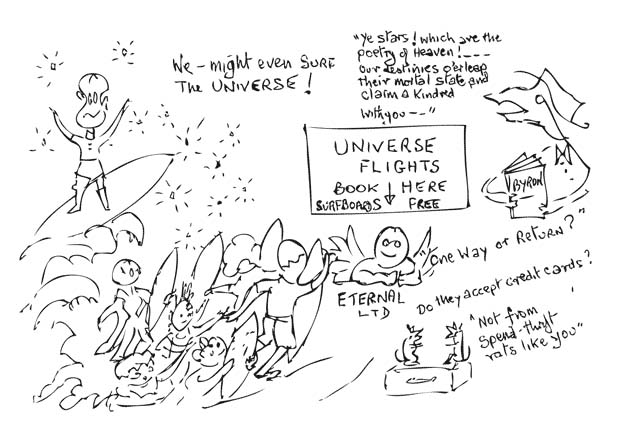 We - might even SURF
The UNIVERSE!
"Ye stars! which are the
poetry of Heaven! ---
Our destinies o'erleap
their mortal state and
claim a kindred
with you -- "
UNIVERSE
FLIGHTS
BOOK ↓ HERE
SURFBOARDS FREE
BYRON
"One Way or Return?"
ETERNAL
LTD
Do they accept credit cards?
"Not from
Spend thrift
rats like you"